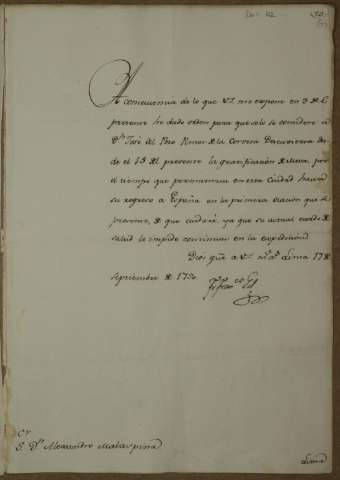 A consecuencia de lo que V.S. me expone en 9 del
presente he dado orden para que solo se considere a
Dn. José del Pozo Pintor de la Corveta Descuvierta des-
de el 15 del presente la gratificacion de mesa, por
el tiempo que permanezca en esta Ciudad hasta
su regreso a España en la primera ocasion que se
presente, de que cuidaré, ya que su actual estado de
salud le impide continuar en la expedicion
Dios gue. a V.S. ms. as. Lima 17 de
septiembre de 1790.
Sr. Dn. Alexandro Malaspina